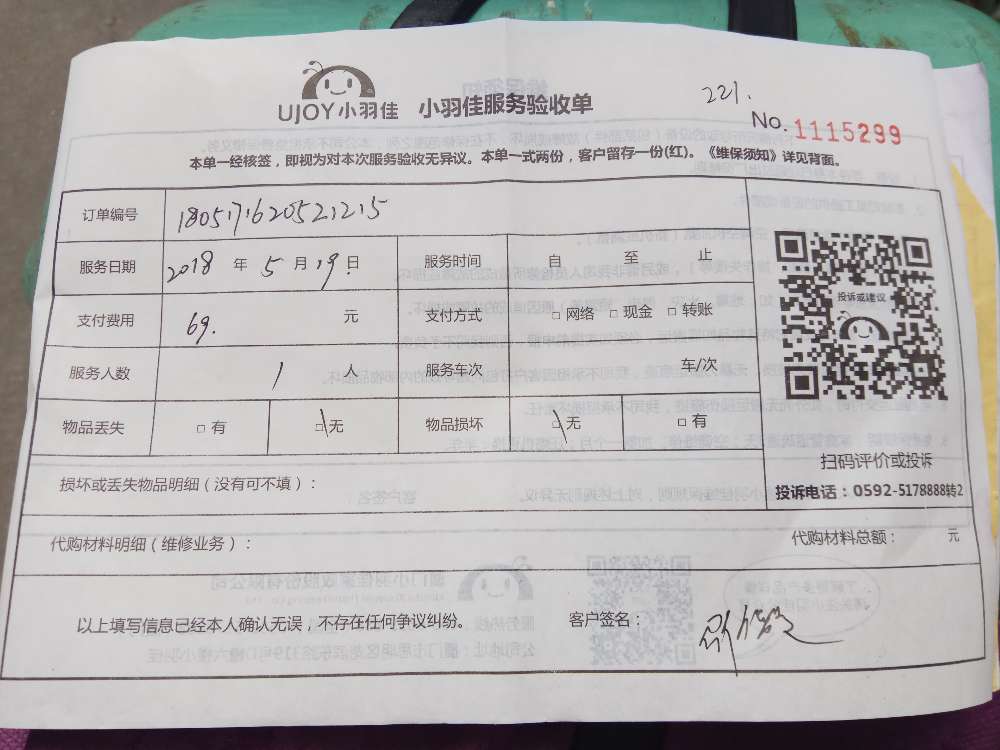 UJOY小羽佳 小羽佳服务验收单
221.
No. 1115299
本单一经核签，即视为对本次服务验收无异议。本单一式两份，客户留存一份(红)。《维保须知》详见背面。
订单编号 1805171620521215
服务日期 2018 年 5 月 19 日 服务时间 自 至 止
支付费用 69. 元 支付方式 □ 网络 □ 现金 □ 转账
服务人数 1 人 服务车次 车/次
物品丢失 □ 有 □ 无 物品损坏 □ 无 □ 有
投诉或建议
扫码评价或投诉
投诉电话：0592-5178888转2
损坏或丢失物品明细（没有可不填）：
代购材料明细（维修业务）： 代购材料总额： 元
以上填写信息已经本人确认无误，不存在任何争议纠纷。 客户签名：